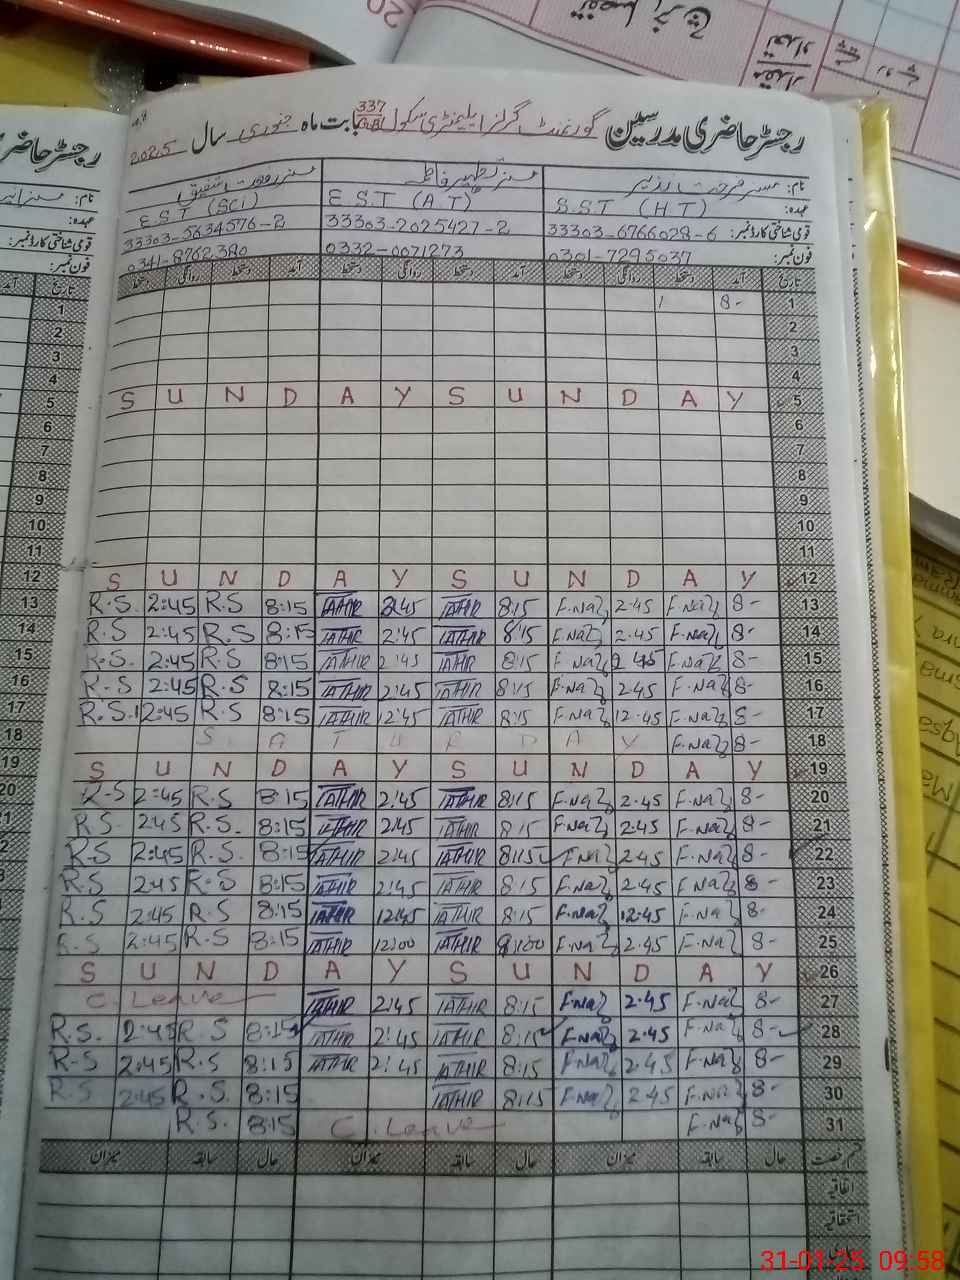 رجسٹر حاضری مدرسین گورنمنٹ گرلز ایلیمنٹری سکول 337 G.B بابت ماہ جنوری سال 2025
نام: مسز فرحت نذیر مسز تطہیر فاطمہ مسز رفعت شفیق
عہدہ: S.S.T (H.T) E.S.T (A.T) E.S.T (SCI)
قومی شناختی کارڈ نمبر: 33303-6766028-6 33303-2025427-2 33303-5634576-2
فون نمبر: 0301-7295037 0332-0071273 0341-8762380
تاریخ آمد دستخط روانگی دستخط آمد دستخط روانگی دستخط آمد دستخط روانگی دستخط
1 8-
2
3
4
S U N D A Y S U N D A Y 5
6
7
8
9
10
11
S U N D A Y S U N D A Y 12
R.S. 2:45 R.S 8:15 TATHIR 2:45 TATHIR 8:15 F.Naz 2.45 F.Naz 8- 13
R.S 2:45 R.S 8:15 TATHIR 2:45 TATHIR 8:15 F.Naz 2.45 F.Naz 8- 14
R.S. 2:45 R.S 8:15 TATHIR 2:45 TATHIR 8:15 F.Naz 2.45 F.Naz 8- 15
R.S 2:45 R.S 8:15 TATHIR 2:45 TATHIR 8:15 F.Naz 2.45 F.Naz 8- 16
R.S. 12:45 R.S 8:15 TATHIR 12:45 TATHIR 8:15 F.Naz 12.45 F.Naz 8- 17
S A T U R D A Y F.Naz 8- 18
S U N D A Y S U N D A Y 19
R.S 2:45 R.S 8:15 TATHIR 2:45 TATHIR 8:15 F.Naz 2.45 F.Naz 8- 20
R.S. 2:45 R.S. 8:15 TATHIR 2:45 TATHIR 8:15 F.Naz 2.45 F.Naz 8- 21
R.S 2:45 R.S. 8:15 TATHIR 2:45 TATHIR 8:15 F.Naz 2.45 F.Naz 8- 22
R.S 2:45 R.S 8:15 TATHIR 2:45 TATHIR 8:15 F.Naz 2.45 F.Naz 8- 23
R.S 2:45 R.S 8:15 TATHIR 12:45 TATHIR 8:15 F.Naz 12.45 F.Naz 8- 24
R.S 2:45 R.S 8:15 TATHIR 12:00 TATHIR 8:00 F.Naz 2.45 F.Naz 8- 25
S U N D A Y S U N D A Y 26
C. Leave TATHIR 2:45 TATHIR 8:15 F.Naz 2.45 F.Naz 8- 27
R.S. 2:45 R.S 8:15 TATHIR 2:45 TATHIR 8:15 F.Naz 2.45 F.Naz 8- 28
R.S 2:45 R.S 8:15 TATHIR 2:45 TATHIR 8:15 F.Naz 2.45 F.Naz 8- 29
R.S 2:45 R.S. 8:15 TATHIR 8:15 F.Naz 2.45 F.Naz 8- 30
R.S. 8:15 C. Leave F.Naz 8- 31
قسم رخصت حال سابقہ میزان حال سابقہ میزان حال سابقہ میزان
اتفاقیہ
استحقاقیہ
31-01-25 09:58